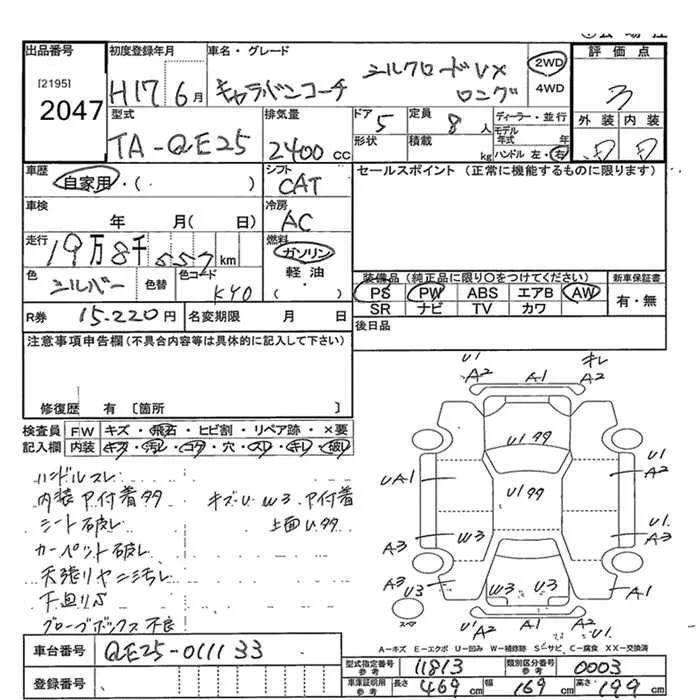 出品番号 初度登録年月 車名・グレード 評価点
[2195]
2047
H17 6月
キャラバンコーチ シルクロードVX ロング
2WD
4WD
3
型式 排気量 ドア 定員 ディーラー・並行 外装 内装
TA-QE25 2400cc 5 8人 モデル年式 年
形状 積載 kg ハンドル 左・右
D D
車歴 シフト セールスポイント (正常に機能するものに限ります)
自家用・( ・ ) CAT
車検 冷房
年 月( 日) AC
走行 燃料
19万8千557km ガソリン
軽油
( ・ )
色 色替 色コード
シルバー KY0
装備品 (純正品に限り○をつけてください) 新車保証書
PS PW ABS エアB AW 有・無
SR ナビ TV カワ
R券 15.220円 名変期限 月 日 後日品
注意事項申告欄(不具合内容等は具体的に記入して下さい)
修復歴 有 〔箇所 〕
検査員 FW キズ・飛石・ヒビ割・リペア跡・×要
記入欄 内装 キズ・汚レ・コゲ・穴・スレ・キレ・破レ
ハンドルスレ
内装P付着タタ キズU W3 P付着
シート破レ 上面Uタタ
カーペット破レ
天張リヤニ汚レ
下廻りS
グローブボックス不良
U1 A2 A1 キレ A2
U1タタ
UA1 U1タタ U1 A2
A3 W3 U1 A2
A3 U3 W3 U3 A1
スペア
U1 A2 A1 A2 U1
A-キズ E-エクボ U-凹み W-補修跡 S-サビ C-腐食 XX-交換済
車台番号 QE25-011133
登録番号
型式指定番号 参考 11813 類別区分番号 参考 0003
車庫証明用 参考 長さ 469cm 幅 169cm 高さ 199cm